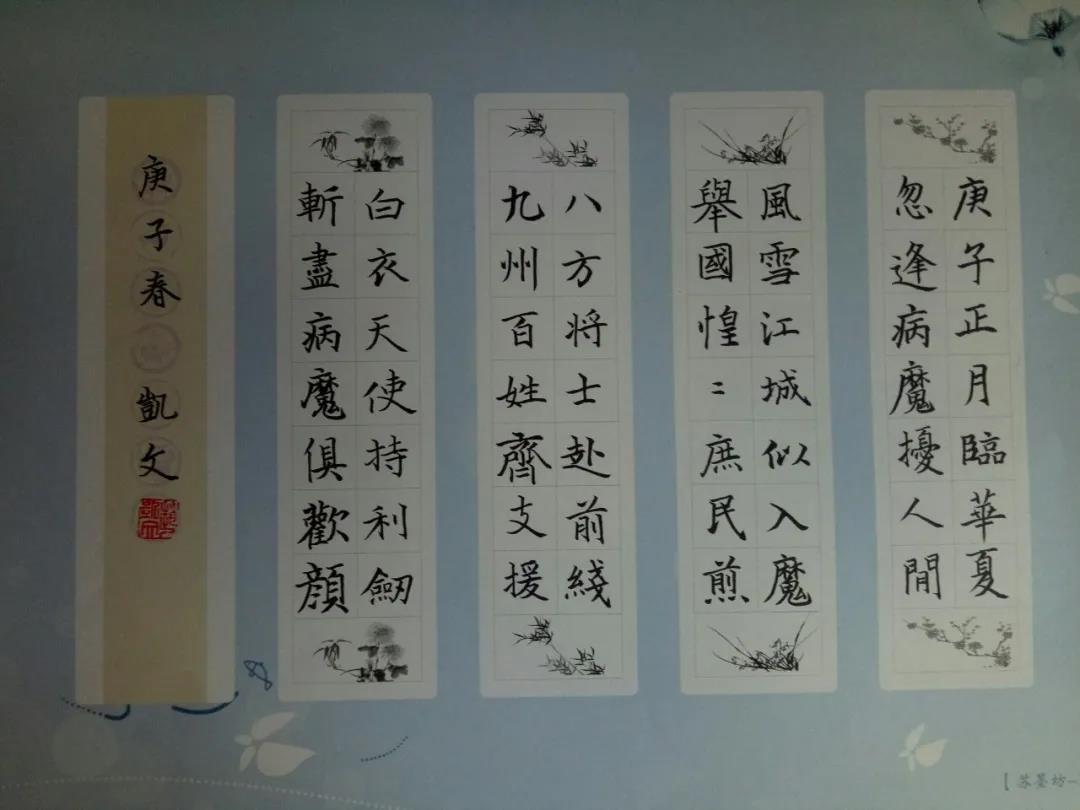 庚子正月臨華夏
忽逢病魔擾人間
風雪江城似入魔
舉國惶〻庶民煎
八方将士赴前綫
九州百姓齊支援
白衣天使持利劒
斬盡病魔俱歡顔
庚子春 凱文
【苏墨坊-